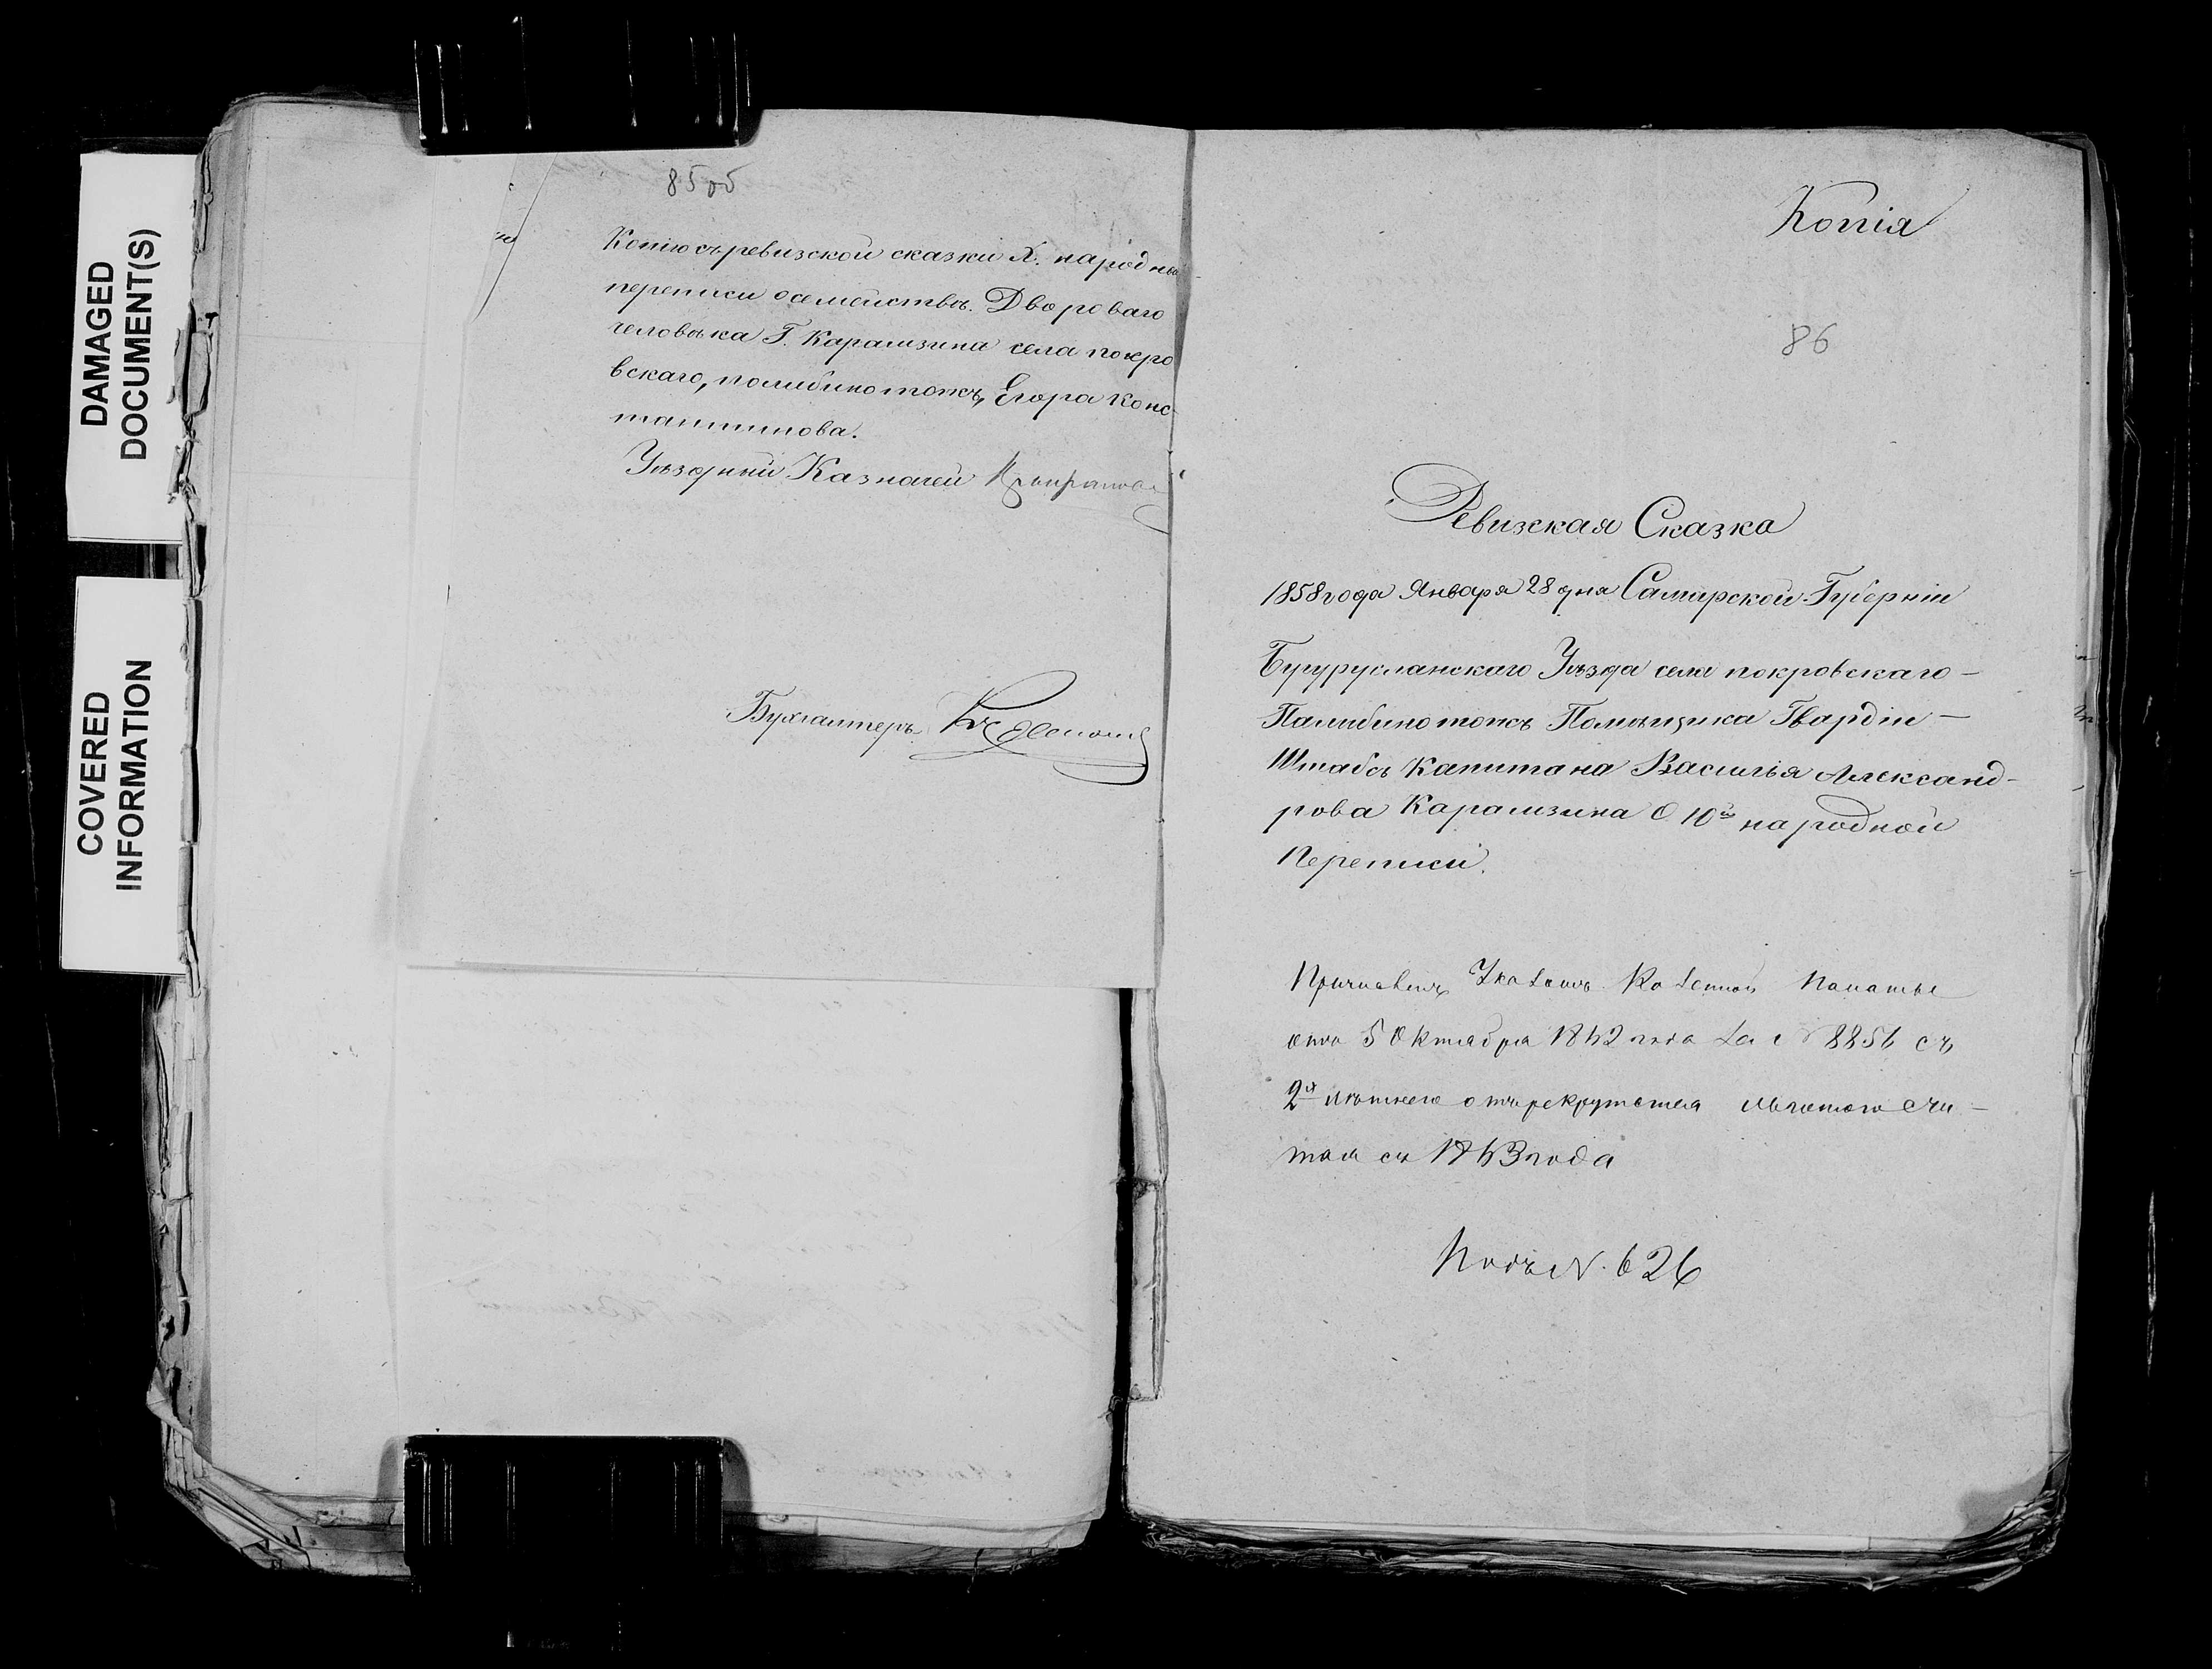 DAMAGED
DOCUMENT(S)
COVERED
INFORMATION
85об
Копію съ ревизской сказки X. народной
переписи о семействѣ Двороваго
человѣка Г. Карамзина села покро
вскаго, полибино тожъ, Егора Конс-
тантинова.
Уѣздный Казначей
Бухгалтеръ
Копія
86
Ревизская Сказка
1858 года Января 28 дня Самарской Губерніи
Бугурусланскаго Уѣзда села покровскаго -
Палибино тожъ Помѣщика Гвардіи -
Штабсъ Капитана Василья Александ-
рова Карамзина О 10й народной
Переписи.
Причисленъ Указомъ Казенной Палаты
отъ 5 Октября 1862 года за № 8856 съ
2х лѣтнею отъ рекрутства льготою счи-
тая съ 1863 года
Подъ N. 626